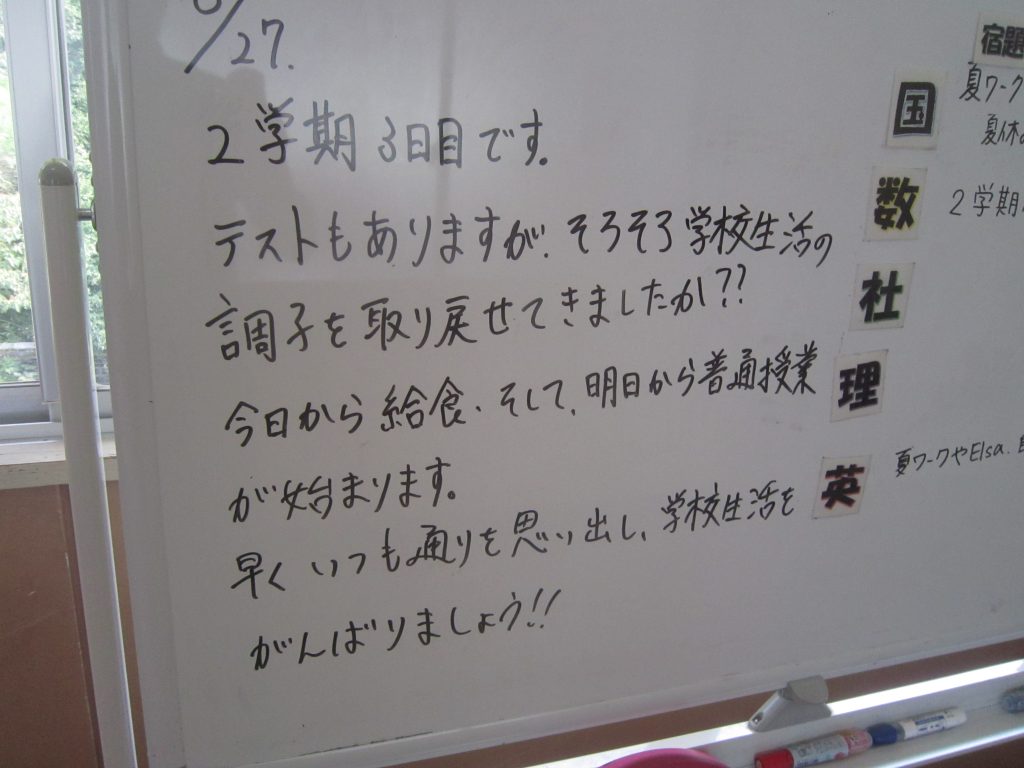 /27.
2学期3日目です。
テストもありますが、そろそろ学校生活の
調子を取り戻せてきましたか??
今日から給食、そして、明日から普通授業
が始まります。
早くいつも通りを思い出し、学校生活を
がんばりましょう!!
宿題
国
夏ワーク
夏休み
数
2学期
社
理
英
夏ワークやElsa、